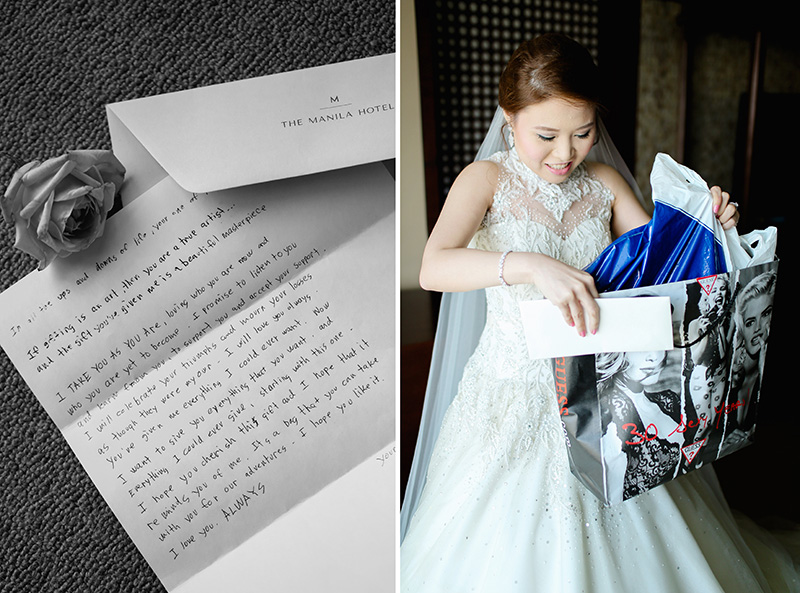 M
THE MANILA HOTEL
In all the ups and downs of life, your one of
If gifting is an art, then you are a true artist...
and the gift you've given me is a beautiful masterpiece
I TAKE YOU AS YOU ARE, loving who you are now and
who you are yet to become. I promise to listen to you
and learn from you, to support you and accept your support.
I will celebrate your triumphs and mourn your losses
as though they were my own. I will love you always
You've given me everything I could ever want. Now
I want to give you everything that you want and
Everything I could ever give. Starting with this one.
I hope you cherish this gift and I hope that it
reminds you of me. It's a bag that you can take
with you for our adventures. I hope you like it.
I love you. ALWAYS
your
GUESS
30
years